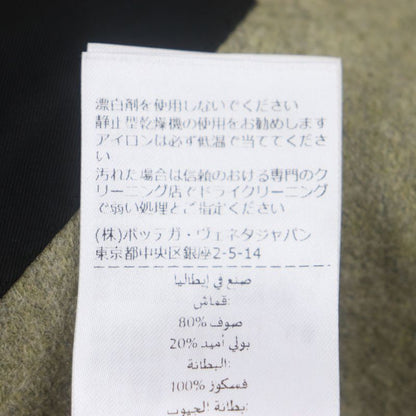 漂白剤を使用しないでください
静止型乾燥機の使用をお勧めします
アイロンは必ず低温で当ててくださ
い
汚れた場合は信頼のおける専門のク
リーニング店でドライクリーニング
で弱い処理とご指定ください
(株)ボッテガ・ヴェネタジャパン
東京都中央区銀座2-5-14
صنع في إيطاليا
قماش:
صوف %80
بولي أميد %20
البطانة:
فسكوز %100
بطانة الجيوب